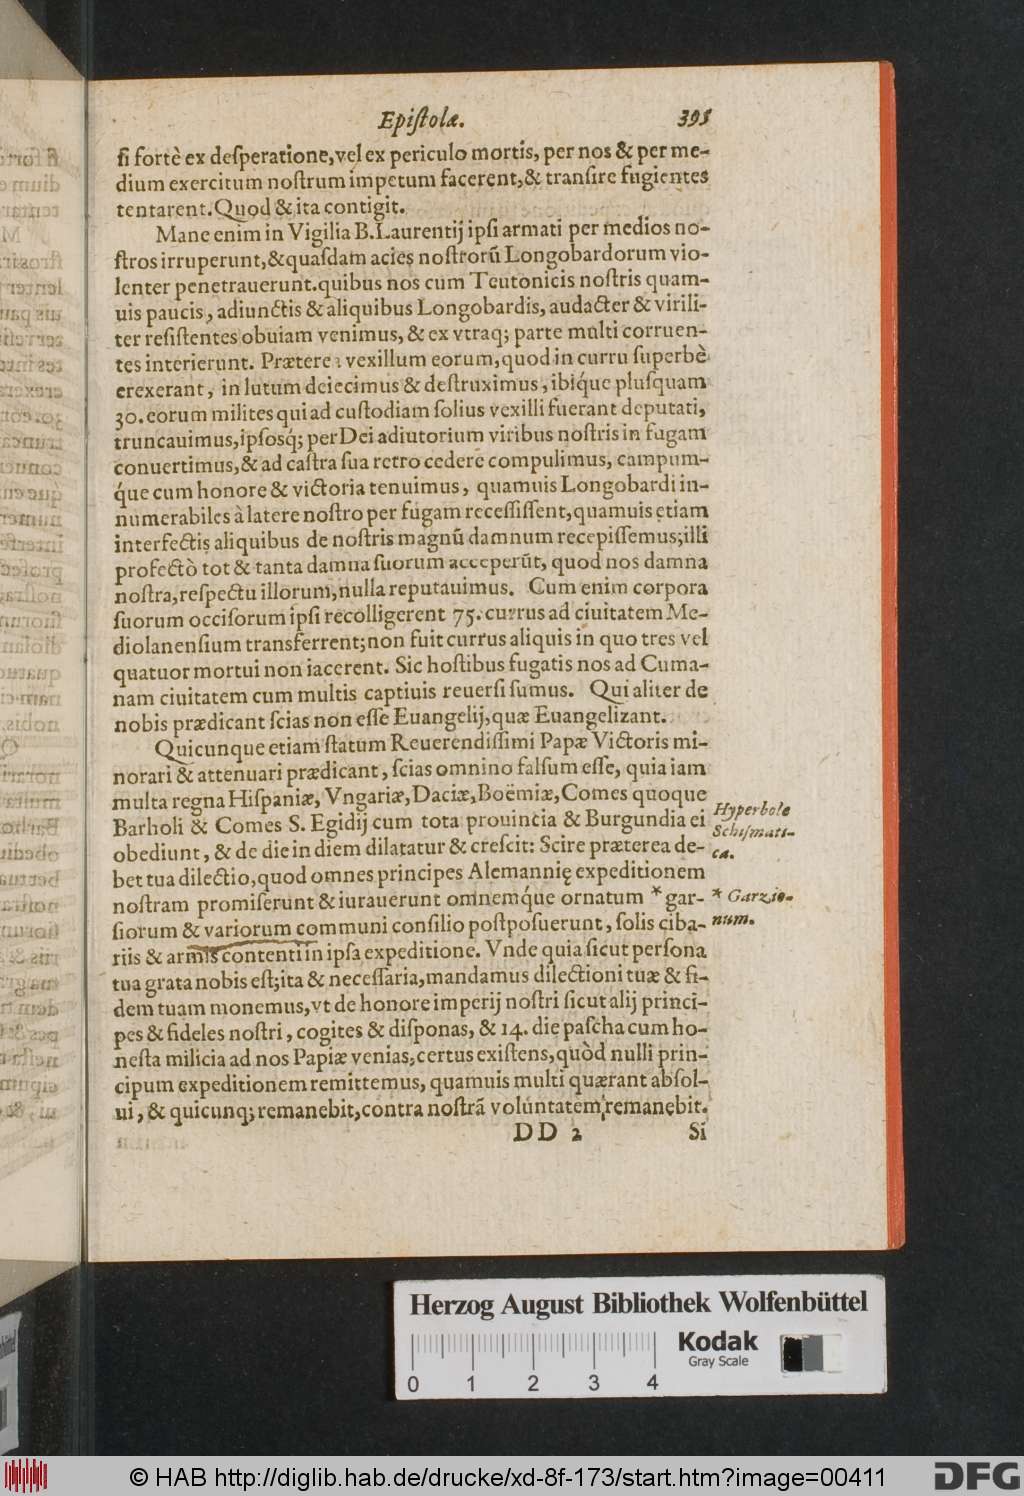 Epiſtolæ. 395
ſi fortè ex deſperatione, vel ex periculo mortis, per nos & per me-
dium exercitum noſtrum impetum facerent, & tranſire fugientes
tentarent. Quod & ita contigit.
Mane enim in Vigilia B. Laurentij ipſi armati per medios no-
ſtros irruperunt, & quaſdam acies noſtrorũ Longobardorum vio-
lenter penetrauerunt. quibus nos cum Teutonicis noſtris quam-
uis paucis, adiunctis & aliquibus Longobardis, audacter & virili-
ter reſiſtentes obuiam venimus, & ex vtraq; parte multi corruen-
tes interierunt. Præterea vexillum eorum, quod in curru ſuperbè
erexerant, in lutum deiecimus & deſtruximus, ibiq́ue pluſquam
30. eorum milites qui ad cuſtodiam ſolius vexilli fuerant deputati,
truncauimus, ipſosq́; per Dei adiutorium viribus noſtris in fugam
conuertimus, & ad caſtra ſua retro cedere compulimus, campum-
q́ue cum honore & victoria tenuimus, quamuis Longobardi in-
numerabiles à latere noſtro per fugam receſſiſſent, quamuis etiam
interfectis aliquibus de noſtris magnũ damnum recepiſſemus; illi
profectò tot & tanta damna ſuorum acceperũt, quod nos damna
noſtra, reſpectu illorum, nulla reputauimus. Cum enim corpora
ſuorum occiſorum ipſi recolligerent 75. currus ad ciuitatem Me-
diolanenſium transferrent; non fuit currus aliquis in quo tres vel
quatuor mortui non iacerent. Sic hoſtibus fugatis nos ad Cuma-
nam ciuitatem cum multis captiuis reuerſi ſumus. Qui aliter de
nobis prædicant ſcias non eſſe Euangelij, quæ Euangelizant.
Quicunque etiam ſtatum Reuerendiſſimi Papæ Victoris mi-
norari & attenuari prædicant, ſcias omnino falſum eſſe, quia iam
multa regna Hiſpaniæ, Vngariæ, Daciæ, Boëmiæ, Comes quoque
Barholi & Comes S. Egidij cum tota prouincia & Burgundia ei
obediunt, & de die in diem dilatatur & creſcit: Scire præterea de-
bet tua dilectio, quod omnes principes Alemannię expeditionem
noſtram promiſerunt & iurauerunt omnemq́ue ornatum * gar-
ſiorum & variorum communi conſilio poſtpoſuerunt, ſolis ciba-
riis & armis contenti in ipſa expeditione. Vnde quia ſicut perſona
tua grata nobis eſt; ita & neceſſaria, mandamus dilectioni tuæ & fi-
dem tuam monemus, vt de honore imperij noſtri ſicut alij princi-
pes & fideles noſtri, cogites & diſponas, & 14. die paſcha cum ho-
neſta milicia ad nos Papiæ venias, certus exiſtens, quòd nulli prin-
cipum expeditionem remittemus, quamuis multi quærant abſol-
ui, & quicunq; remanebit, contra noſtrã voluntatem remanebit.
DD 2 Si
Hyperbole
Schiſmati-
ca.
* Garzio-
num.
Herzog August Bibliothek Wolfenbüttel
Kodak
Gray Scale
0 1 2 3 4
© HAB http://diglib.hab.de/drucke/xd-8f-173/start.htm?image=00411
DFG